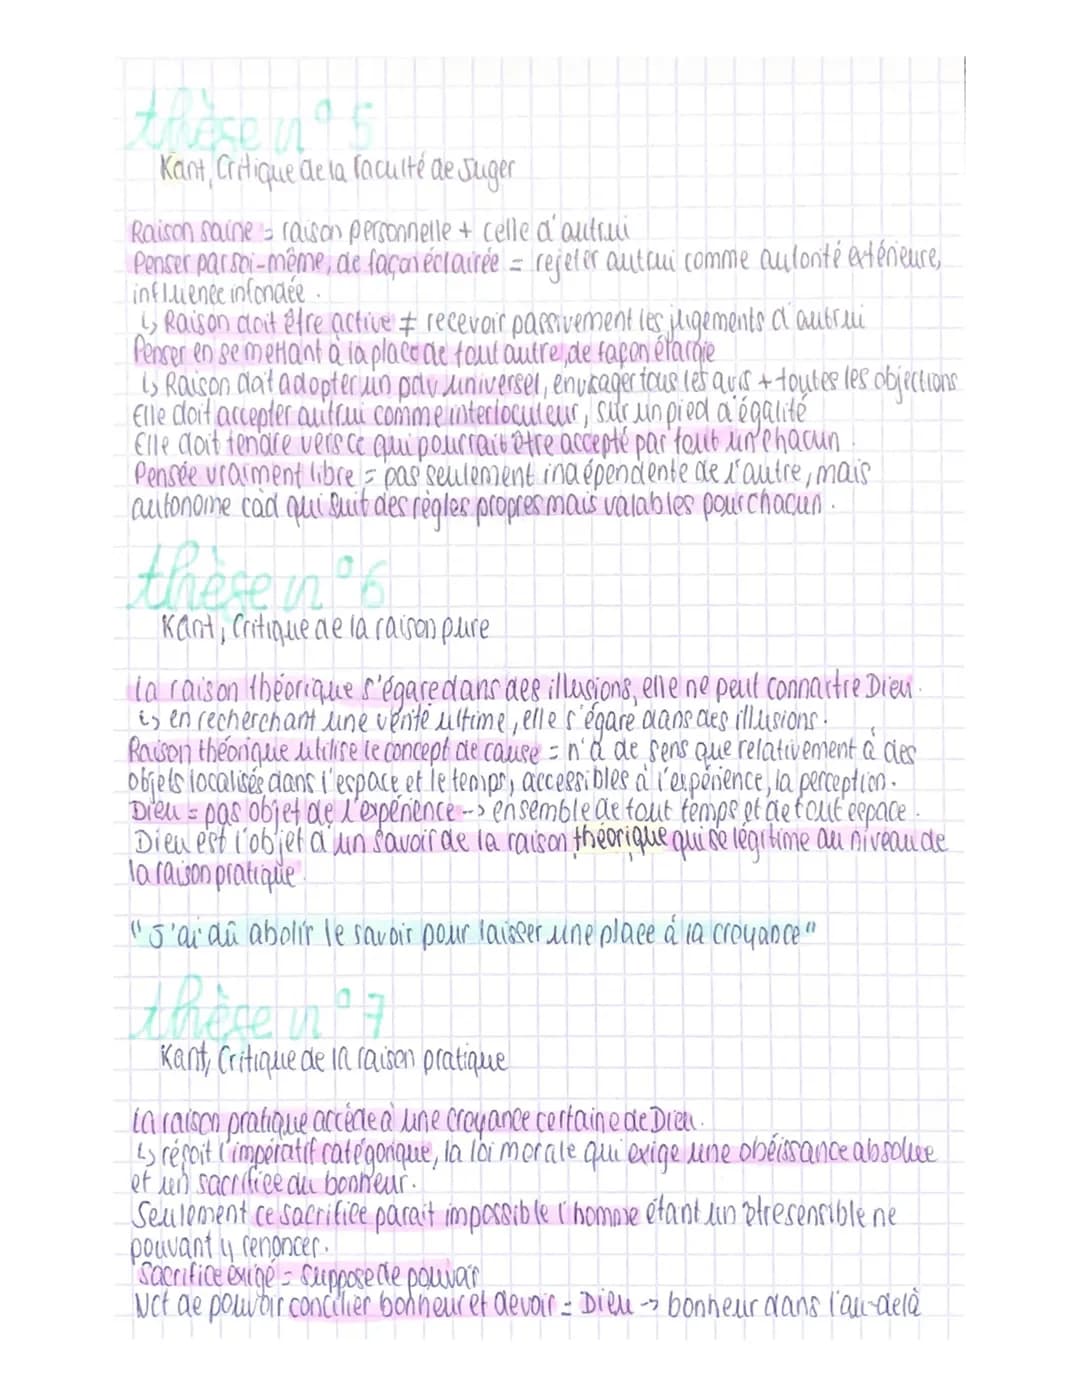 thèse n°5
Kant, Critique de la faculté de Juger
Raison saine = raison personnelle + celle d'autrui
Penser par soi-même, de façon éclairée = rejeter autrui comme autorité extérieure,
influence infondée.
↳ Raison doit être active ≠ recevoir passivement les jugements d'autrui
Penser en se mettant à la place de tout autre, de façon élargie
↳ Raison doit adopter un pdv universel, envisager tous les avis + toutes les objections
Elle doit accepter autrui comme interlocuteur, sur un pied d'égalité
Elle doit tendre vers ce qui pourrait être accepté par tout un chacun.
Pensée vraiment libre = pas seulement indépendente de l'autre, mais
autonome càd qui suit des règles propres mais valables pour chacun.
thèse n°6
Kant, Critique de la raison pure
La raison théorique s'égare dans des illusions, elle ne peut connaître Dieu.
↳ en recherchant une vérité ultime, elle s'égare dans des illusions.
Raison théorique utilise le concept de cause = n'a de sens que relativement à des
objets localisés dans l'espace et le temps, accessibles à l'expérience, la perception.
Dieu = pas objet de l'expérience --> ensemble de tout temps et de tout espace.
Dieu est l'objet d'un savoir de la raison théorique qui se légitime au niveau de
la raison pratique.
"J'ai dû abolir le savoir pour laisser une place à la croyance"
thèse n°7
Kant, Critique de la raison pratique
La raison pratique accède à une croyance certaine de Dieu.
↳ reçoit l'impératif catégorique, la loi morale qui exige une obéissance absolue
et un sacrifice du bonheur.
Seulement ce sacrifice parait impossible l'homme étant un être sensible ne
pouvant y renoncer.
Sacrifice exigé = suppose de pouvoir
Nct de pouvoir concilier bonheur et devoir = Dieu -> bonheur dans l'au-delà